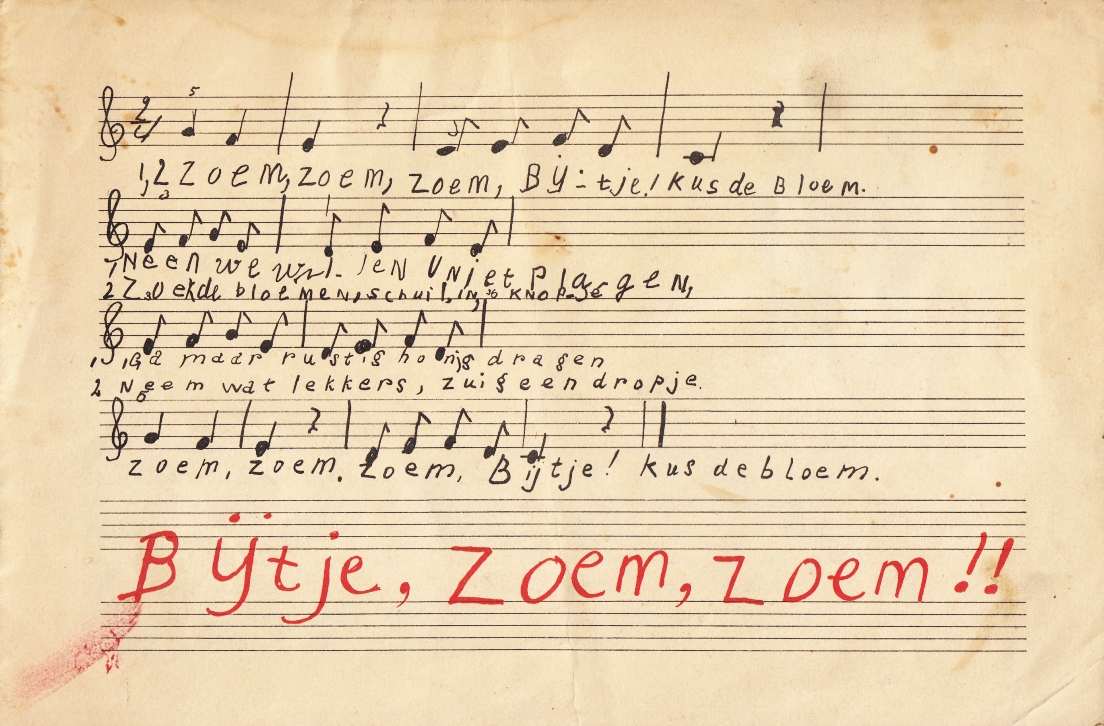 2/4 5
1,2 Zoem, zoem, zoem, Bij-tje! kus de Bloem.
1, Neen we wil-len U niet plagen,
2 Zoek de bloemen, schuil in, knopje
1, Ga maar rustig honig dragen
2 Neem wat lekkers, zuig een dropje.
zoem, zoem. zoem, Bijtje! kus de bloem.
Bijtje, Zoem, zoem!!